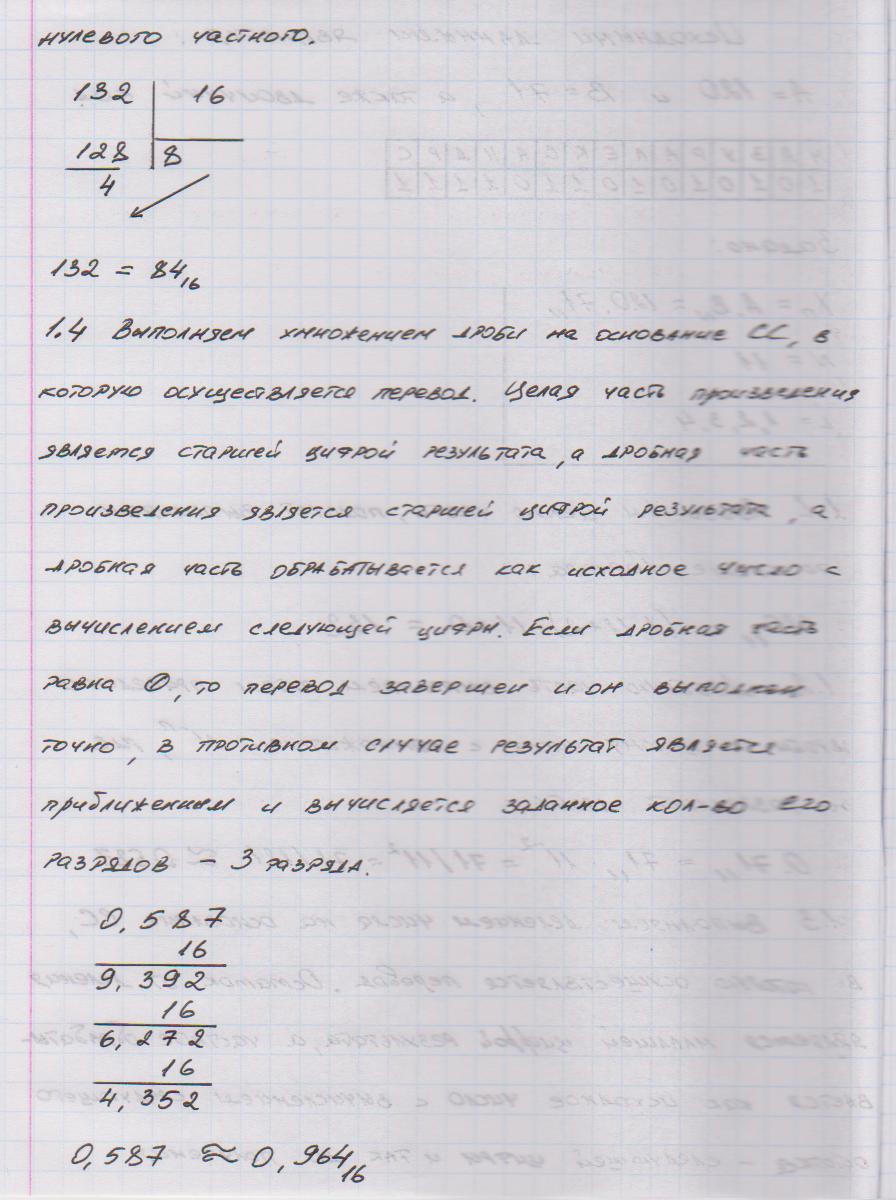 нулевого частного.
132 16
128 8
4
132 = 84₁₆
1.4 Выполняем умножением дроби на основание СС, в
которую осуществляется перевод. Целая часть произведения
является старшей цифрой результата, а дробная часть
произведения является старшей цифрой результата, а
дробная часть обрабатывается как исходное число с
вычислением следующей цифры. Если дробная часть
равна 0, то перевод завершен и он выполнен
точно, в противном случае результат является
приближенным и вычисляется заданное кол-во его
разрядов – 3 разряда.
0,587
16
9,392
16
6,272
16
4,352
0,587 ≈ 0,964₁₆